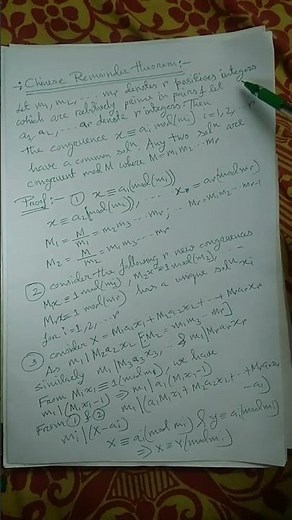 -: Chinese Remainder Theorem:-
Let m₁, m₂, .... mᵣ denotes r positives integers
which are relatively primes in pairs & let
a₁, a₂, ... aᵣ denote r integers. Then
the congruence x ≡ aᵢ mod(mᵢ) i=1,2,.. r
have a common solⁿ. Any two solⁿ are
congruent mod M where M=m₁m₂...mᵣ
Proof:- ① x ≡ a₁(mod(m₁))
x ≡ a₂(mod(m₂)), .... xᵣ = aᵣ(mod mᵣ)
M₁ = M/m₁ = m₂m₃...mᵣ ; Mᵣ=m₁m₂...mᵣ₋₁
M₂ = M/m₂ = m₁m₃...mᵣ
② consider the following r new congruences
M₁x ≡ 1 mod(m₁), M₂x ≡ 1 mod(m₂), -
Mᵣx ≡ 1 mod(mᵣ) has a unique solⁿ xᵢ
for i=1,2,..r
③ consider X = M₁a₁x₁+M₂a₂x₂+...+Mᵣaᵣxᵣ
As m₁|M₂a₂x₂ [M₂ = m₁m₃...mᵣ]
similarly m₁|M₃a₃x₃, & m₁|Mᵣaᵣxᵣ
From M₁x₁ ≡ 1(mod m₁), we have
m₁|(M₁x₁-1) => m₁|a₁(M₁x₁-1)
From ① & ② m₁|(a₁M₁x₁+M₂a₂x₂+...+Mᵣaᵣxᵣ-a₁)
mᵢ|(X-aᵢ)
X ≡ aᵢ(mod mᵢ) & y ≡ aᵢ(mod mᵢ)
=> X ≡ Y(mod mᵢ)